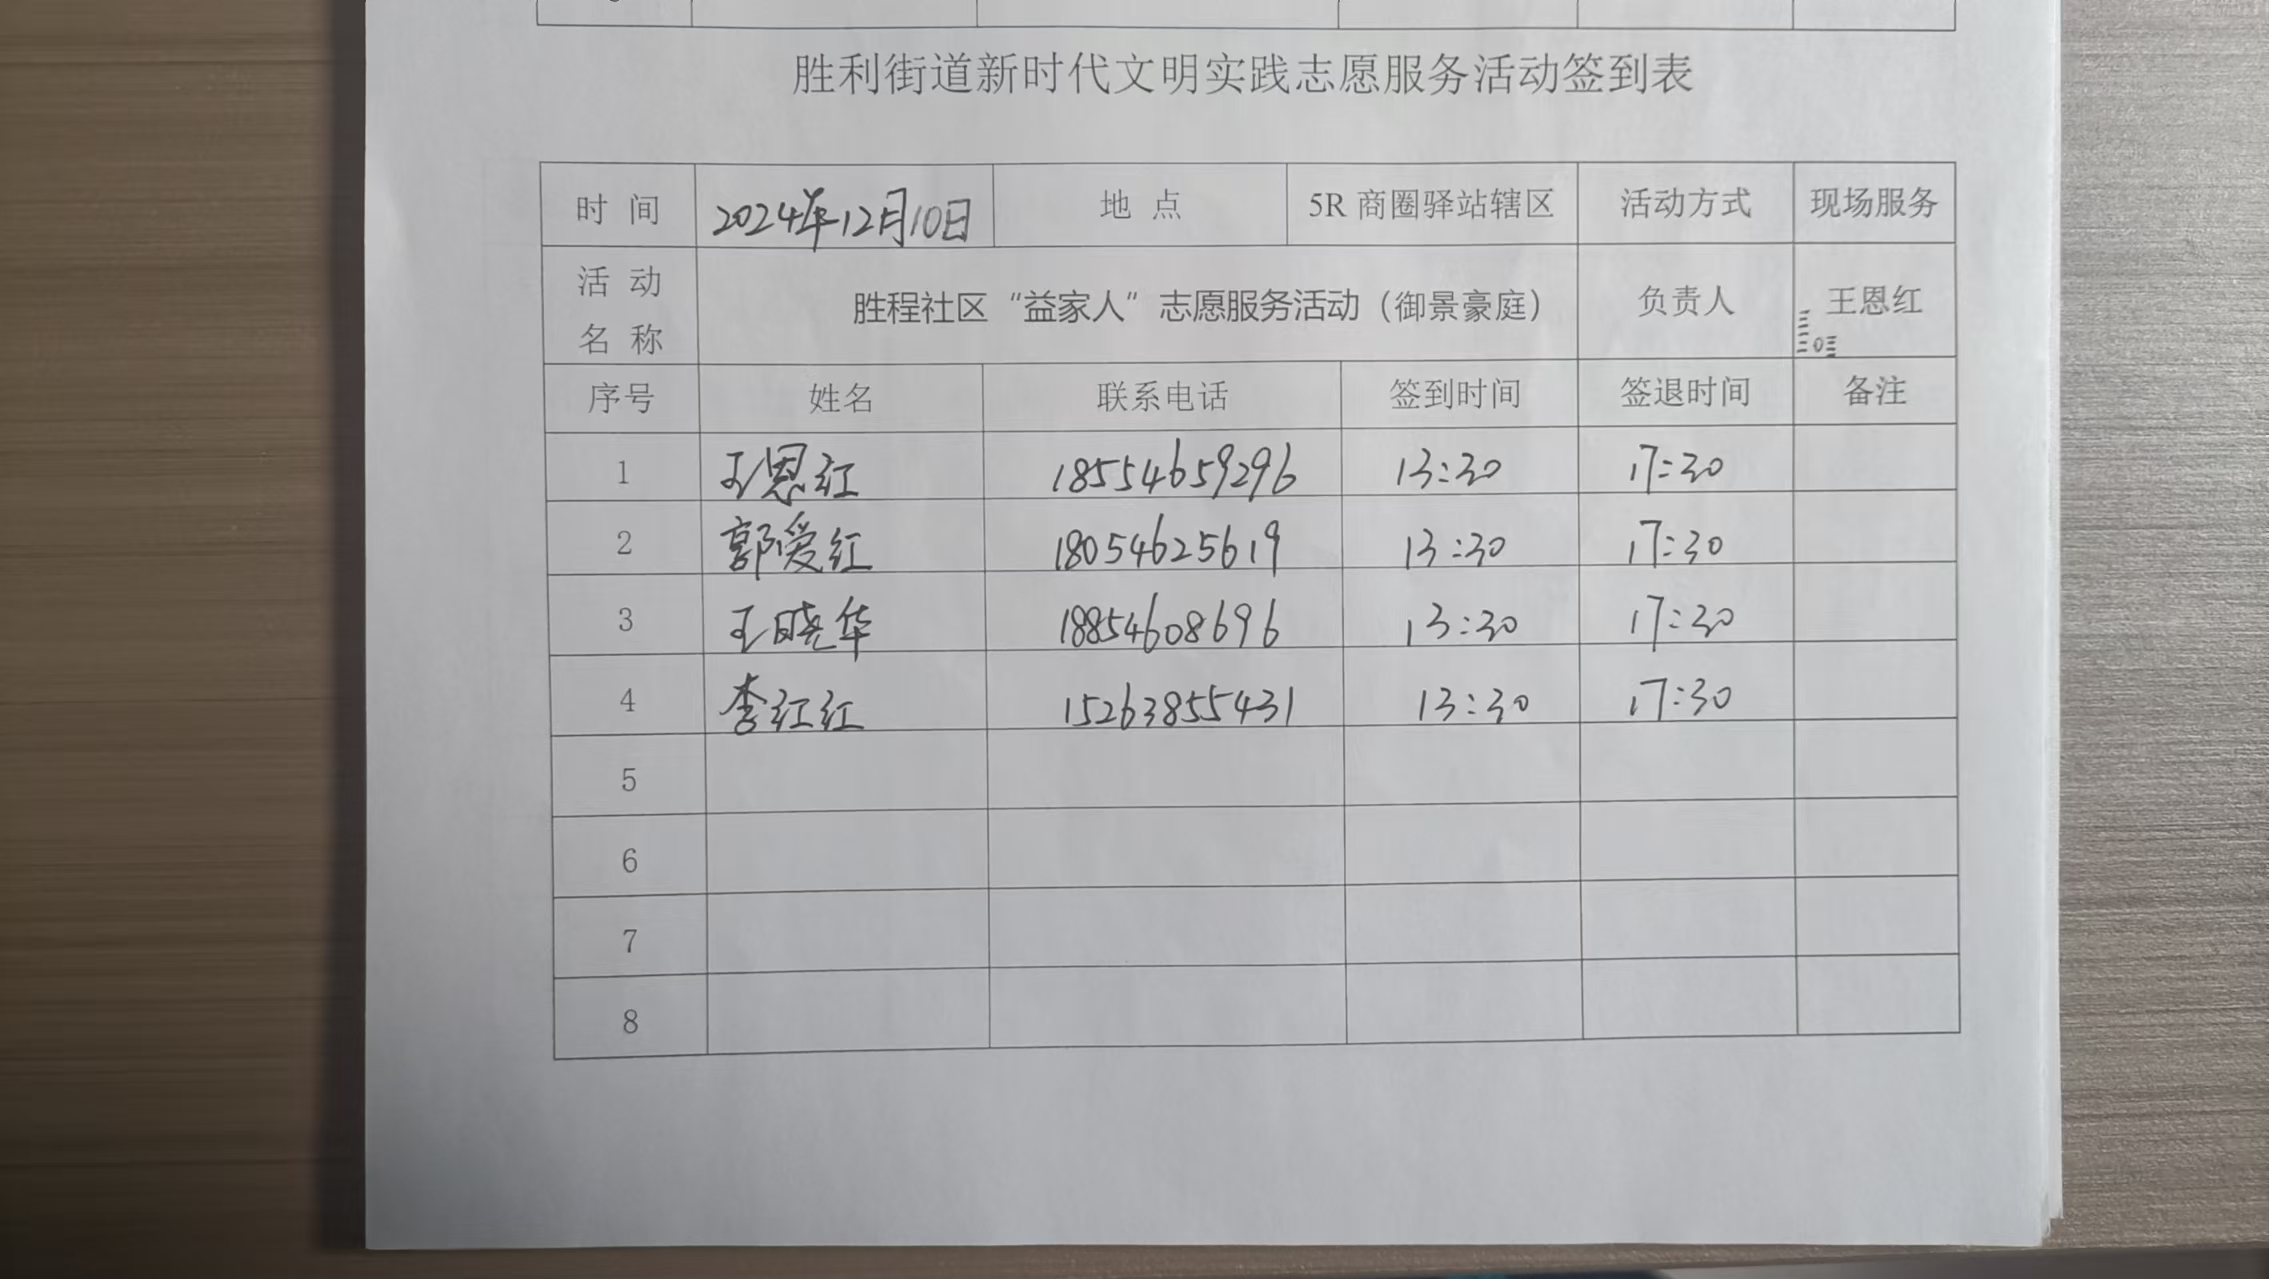 胜利街道新时代文明实践志愿服务活动签到表
时 间 2024年12月10日 地 点 5R 商圈驿站辖区 活动方式 现场服务
活 动
名 称 胜程社区“益家人”志愿服务活动（御景豪庭） 负责人 王恩红
序号 姓名 联系电话 签到时间 签退时间 备注
1 王恩红 18554659296 13:30 17:30
2 郭爱红 18054625619 13:30 17:30
3 王晓华 18854608696 13:30 17:30
4 李红红 15263855431 13:30 17:30
5
6
7
8